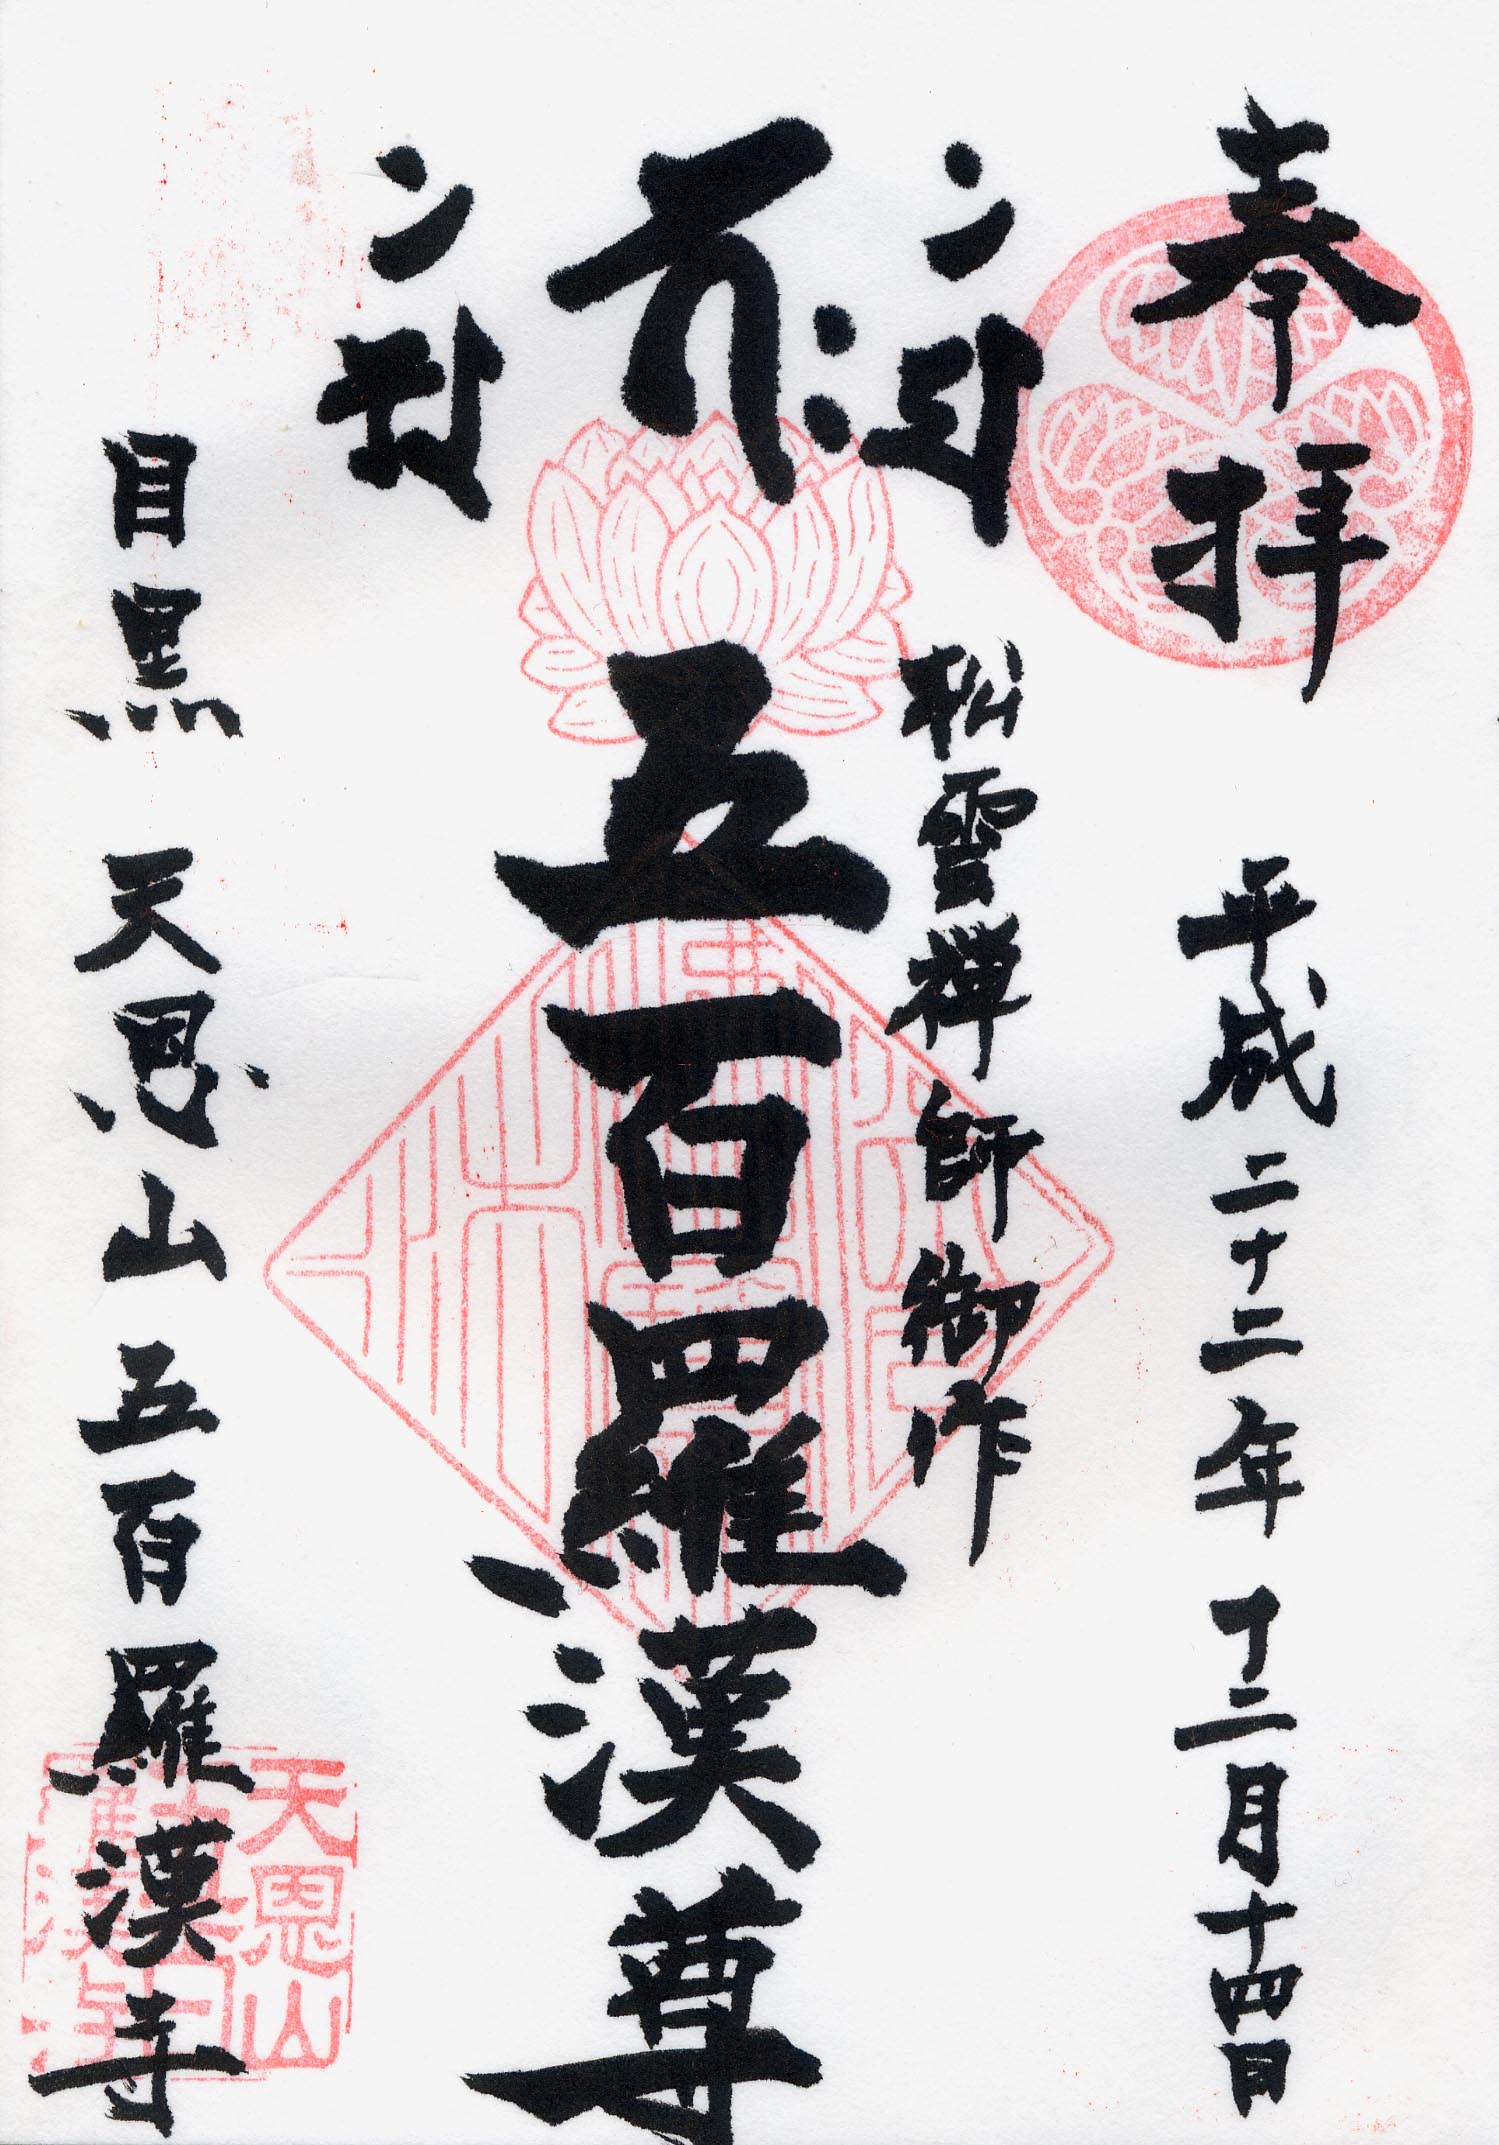 奉拝
平成二十三年十二月十四日
松雲禅師御作
五百羅漢尊
目黒 天恩山 五百羅漢寺
天恩山